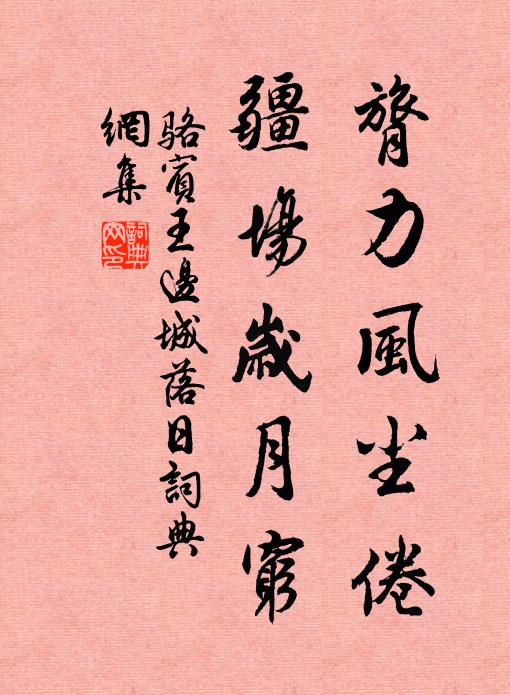 膂力風尘倦
疆場歲月窮
駱賓王邊城落日詞典
網集
詞典
网印